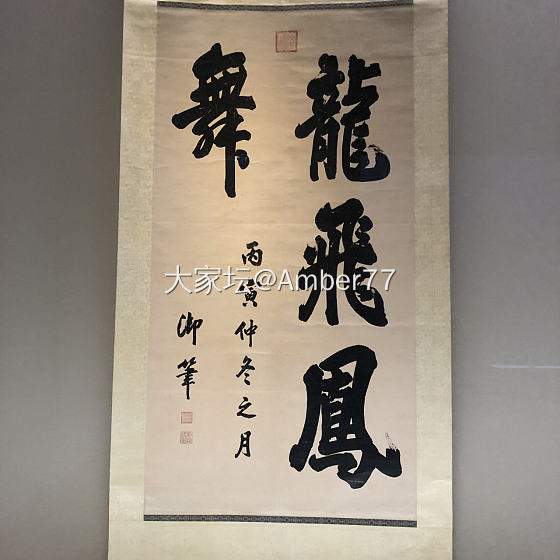 龍飛鳳
舞
丙寅仲冬之月
御筆
大家坛@Amber77